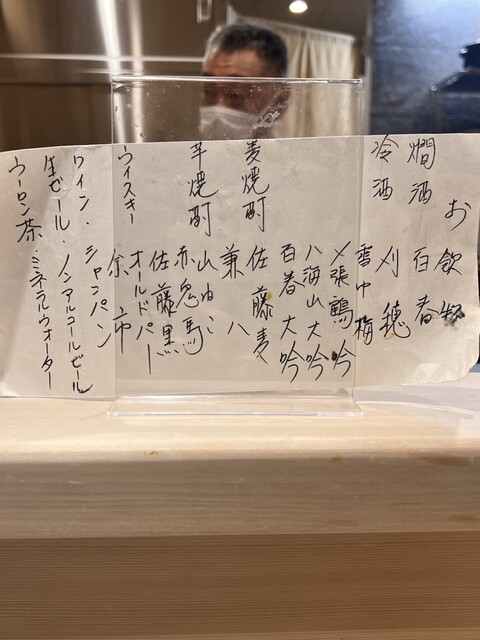 お飲物
燗酒 百春
冷酒 刈穂
雪中梅
〆張鶴 吟
八海山 大吟
百春 大吟
麦焼酎 佐藤麦
兼八
芋焼酎 山ねこ
赤兎馬
佐藤黒
ウイスキー オールドパー
余市
ワイン・シャンパン
生ビール・ノンアルコールビール
ウーロン茶・ミネラルウォーター